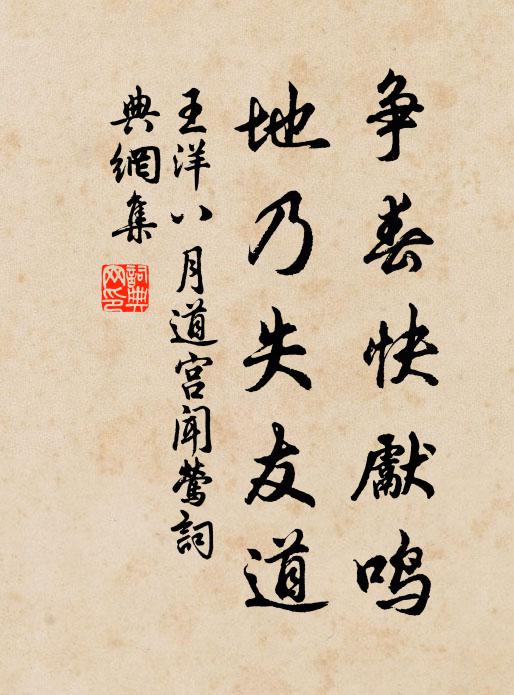 争春快獻鳴
地乃失友道
王洋八月道宫闻莺詞
典網集
詞典
网印